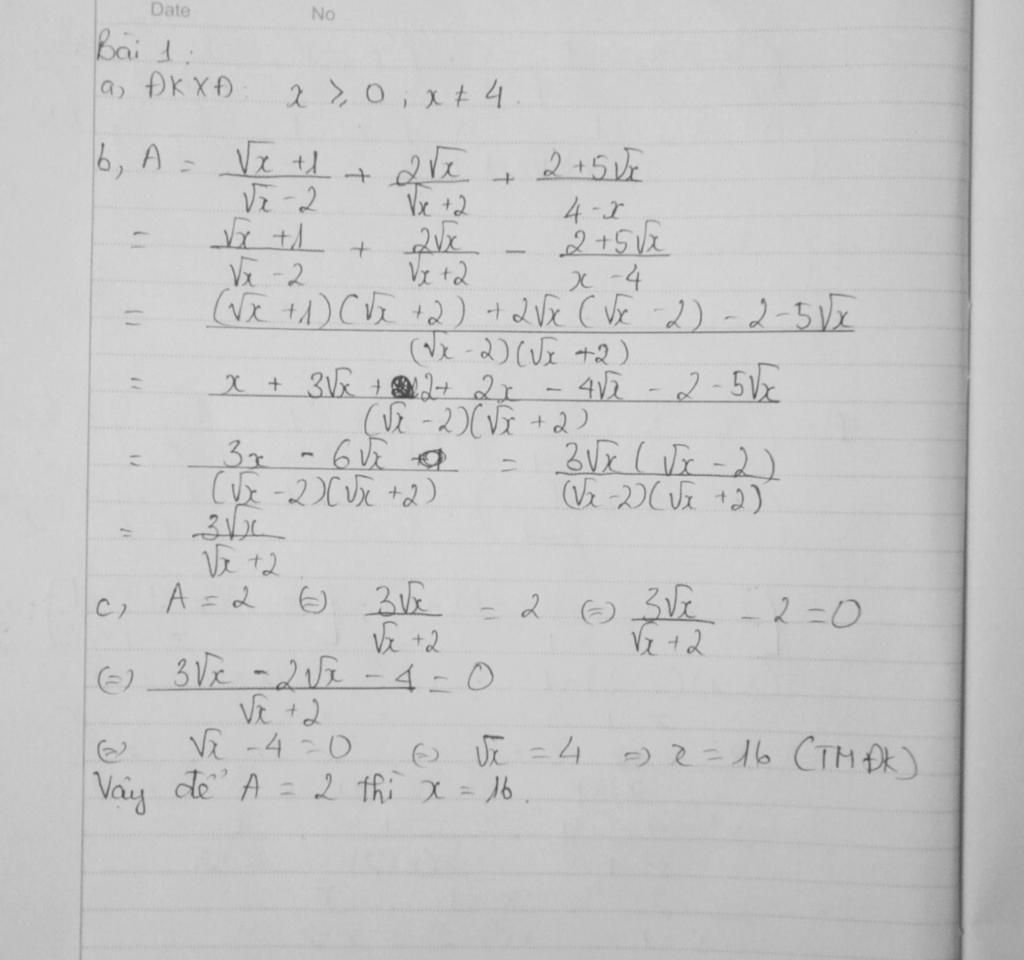 Date No
Bài 1:
a, ĐKXĐ: x ⩾ 0; x ≠ 4.
b, A = (√x + 1)/(√x - 2) + 2√x/(√x + 2) + (2 + 5√x)/(4 - x)
= (√x + 1)/(√x - 2) + 2√x/(√x + 2) - (2 + 5√x)/(x - 4)
= ((√x + 1)(√x + 2) + 2√x(√x - 2) - 2 - 5√x)/((√x - 2)(√x + 2))
= (x + 3√x + 2 + 2x - 4√x - 2 - 5√x)/((√x - 2)(√x + 2))
= (3x - 6√x)/((√x - 2)(√x + 2)) = (3√x(√x - 2))/((√x - 2)(√x + 2))
= 3√x/(√x + 2)
c, A = 2 (=) 3√x/(√x + 2) = 2 (=) 3√x/(√x + 2) - 2 = 0
(=) (3√x - 2√x - 4)/(√x + 2) = 0
(=) √x - 4 = 0 (=) √x = 4 => x = 16 (TMĐK)
Vậy để A = 2 thì x = 16.